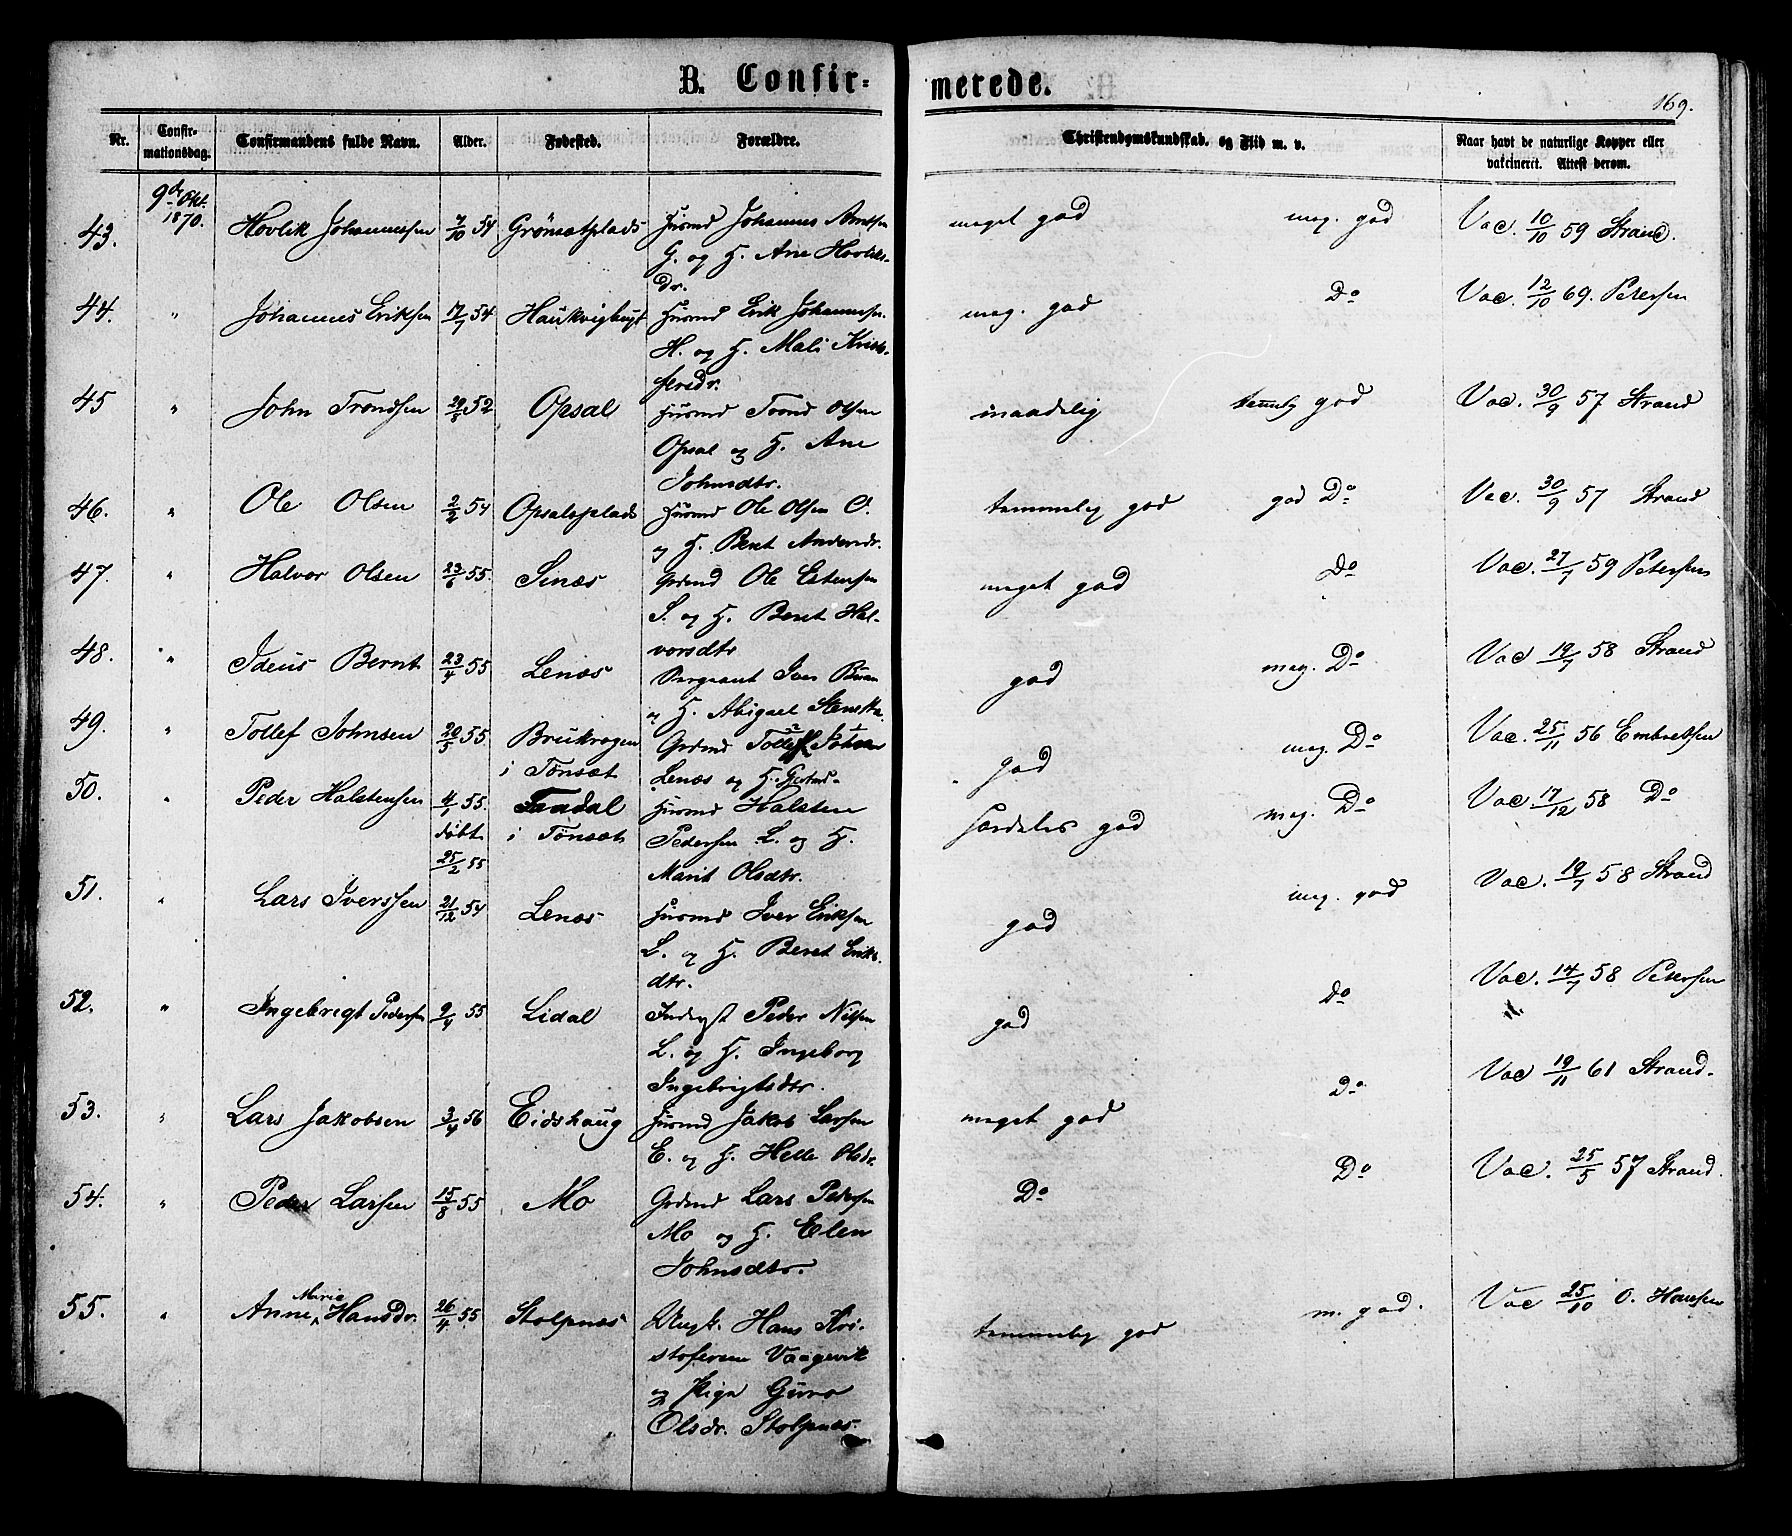 B. Confir-
merede.
169.
Nr.
Confir-
mationsdag.
Confirmandens fulde Navn.
Alder.
Fødested.
Forældre.
Christendomskundskab, og Flid m. v.
Naar havt de naturlige Kopper eller
vakcineret. Attest derom.
9de Okt.
43. 1870. Hovlik Johannessen 7/10 54 Grönsætplads Husmd Johannes Arntsen meget god meg. god Vac. 10/10 59 Strand.
G. og H. Ane
dr.
44. " Johannes Eriksen 17/7 54 Husmd Erik Johannesen meg. god Do Vac. 12/10 69. Petersen
H. og H. Mali Kristo-
fersdr.
45 " John Trondsen 29/5 52 Opsal Husmd Trond Olsen maadelig temmelig god Vac. 30/9 57 Strand
Opsal og H. Ane
Johnsdtr.
46. " Ole Olsen 2/2 54 Opsalsplads Husmd Ole Olsen O. temmelig god god Do Vac. 30/9 57 Strand
og H. Beret Andersdr.
47. " Halvor Olsen 23/6 55. Senæs Grdmd Ole Estensen meget god Do Vac. 27/7 59 Petersen
S. og H. Beret Hal-
vorsdtr
48. " Ideus Bernt 23/4 55 Lenæs Sergeant Iver god meg. Do Vac 19/7 58 Strand
og H. Abigael
49. " Tollef Johnsen 20/5 55 Brukrogen Grdmd Tollef Johnsen god meg. Do Vac. 25/11 56 Embretsen
i Tönsæt Lenæs og H.
50. " Peder Halstensen 4/1 55. i Tönsæt Husmd Halsten særdeles god meg. Do Vac 17/12 58 Do
döbt Pedersen L. og H.
25/2 55 Marit Olsdtr.
51. " Lars Iverssen 21/12 54 Lenæs Husmd Iver Eriksen god meg. god Vac. 19/7 58 Strand
L. og H. Beret Eriks-
dtr.
52. " Ingebrigt Pedersen 2/4 55 Lidal Inderst Peder Nilsen god Do Vac. 14/7 58 Petersen
L. og H. Ingeborg
Ingebrigtsdtr.
53. " Lars Jakobsen 3/4 56 Eidshaug Husmd Jakob Larsen meget god Do Vac 19/11 61 Strand.
E. og H. Helle Olsdr.
54. " Peder Larsen 15/8 55 Mo Grdmd Lars Pedersen Do Do Vac. 25/5 57 Strand.
Mo og H. Elen
Johnsdtr.
55. " Anne Marie Hansdr. 26/4 55 Stolpnæs Ungk. Hans Kri- temmelig god m. god. Vac 25/10 O. Hansen
stofersen Vaagevik
og Pige Guro
Olsdr. Stolpnæs.